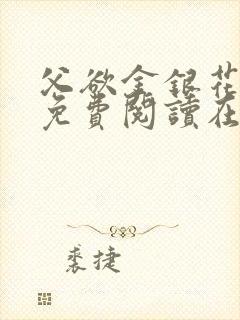 父欲金銀花
免費閱讀在
裘捷